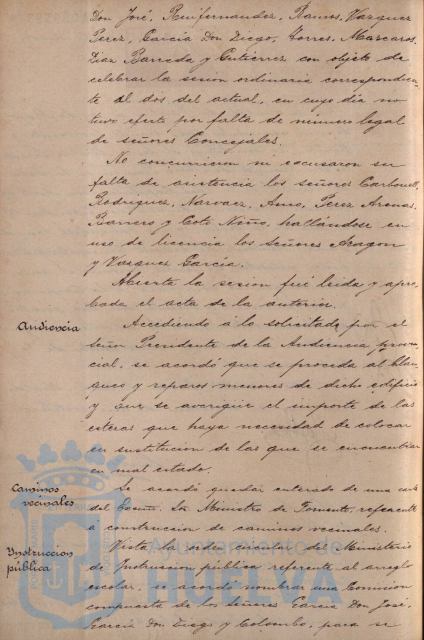 Don José, Ruifernandez, Ramos, Vazquez
Perez, García Don Diego, Torres, Mascaros,
Diaz Barreda y Gutierrez con objeto de
celebrar la sesion ordinaria correspondien-
te al dos del actual, en cuyo dia no
tuvo efecto por falta de número legal
de señores Concejales.
No concurrieron ni excusaron su
falta de asistencia los señores Carbonell,
Rodriguez, Narvaez, Amo, Perez Arenas,
Barrero y Coto Niño, hallándose en
uso de licencia los señores Aragon
y Vazquez García.
Abierta la sesion fué leida y apro-
bada el acta de la anterior.
Audiencia
Accediendo á lo solicitado por el
Señor Presidente de la Audiencia provin-
cial, se acordó que se proceda al blan-
queo y reparos menores de dicho edificio
y que se averigüe el importe de las
esteras que haya necesidad de colocar
en sustitucion de las que se encuentran
en mal estado.
Caminos
vecinales
Se acordó quedar enterado de una
del Excmo. Sr. Ministro de Fomento, referente
á construccion de caminos vecinales.
Instruccion
pública
Vista la Circular del Ministerio
de Instruccion pública referente al arreglo
escolar, se acordó nombrar una Comision
compuesta de los Señores García Don José,
García Don Diego y Colombo, para se
Ayuntamiento de
HUELVA